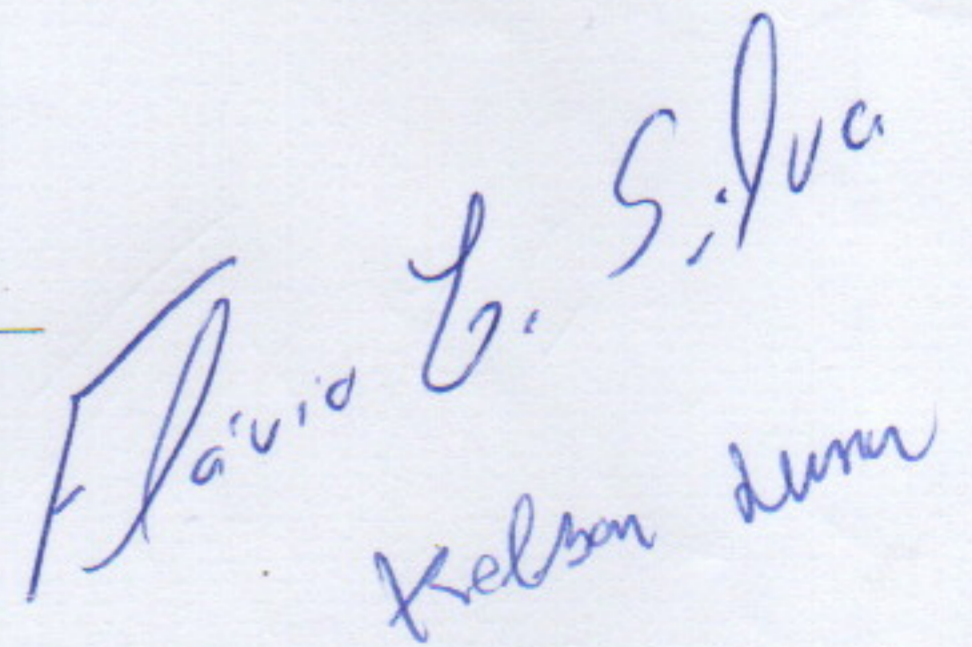 Flávio C. Silva
Kelson Luna